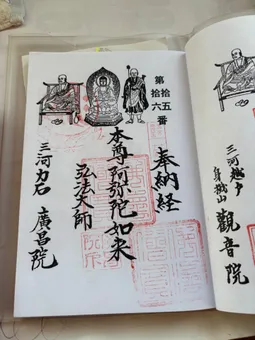 三河越戸
觀音院
拾五
第拾六番
奉納経
本尊阿弥陀如来
弘法大師
三河力石 廣昌院